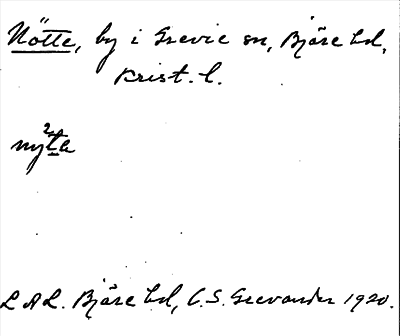 Nötte, by i Grevie sn, Bjäre hd,
Krist. l.
ny²te
L A L. Bjäre hd, C. S. Grevander 1920.